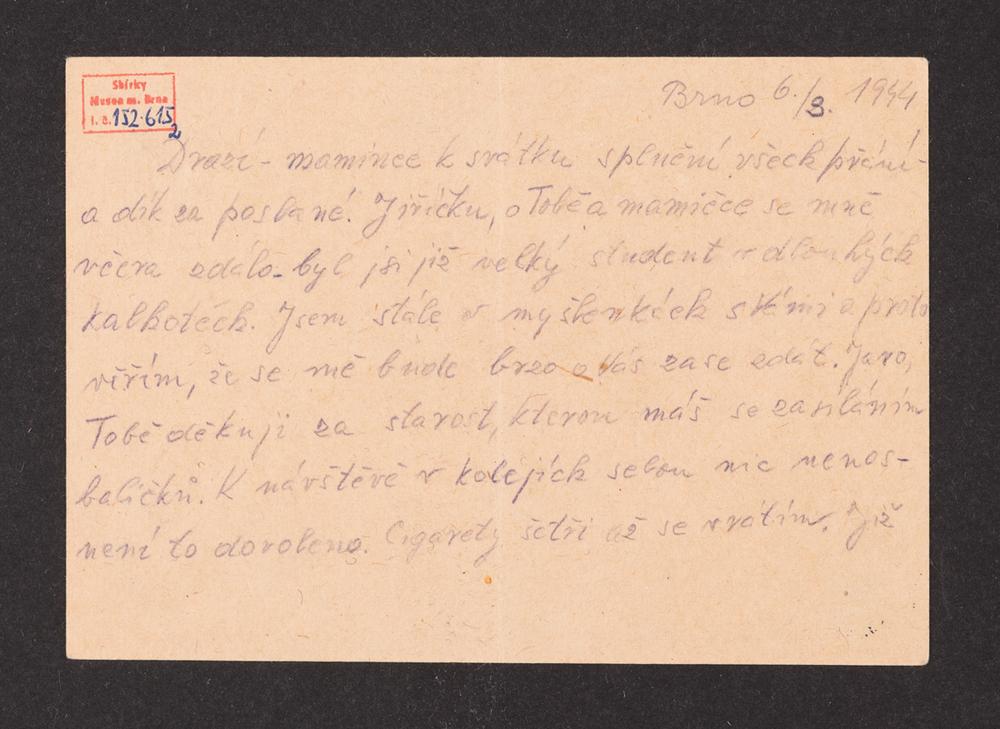 Sbírky
Musea m. Brna
i. č. 152.615
2
Brno 6./3. 1944
Drazí - mamince k svátku splnění všech přání
a dík za poslané. Jiříčku, o Tobě a mamičce se mně
včera zdálo - byl jsi již velký student v dlouhých
kalhotech. Jsem stále v myšlenkách s Vámi a proto
věřím, že se mě bude brzo o Vás zase zdát. Jaro,
Tobě děkuji za starost, kterou máš se zasíláním
balíčků. K návštěvě v kolejích sebou nic nenos -
není to dovoleno. Cigarety šetři až se vrátím. Již